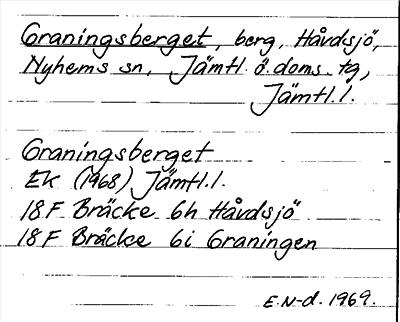 Graningsberget, berg, Håvdsjö,
Nyhems sn, Jämtl. ö. doms. tg,
Jämtl. l.
Graningsberget
EK (1968) Jämtl. l.
18 F Bräcke 6h Håvdsjö
18 F Bräcke 6i Graningen
E. N-d. 1969.